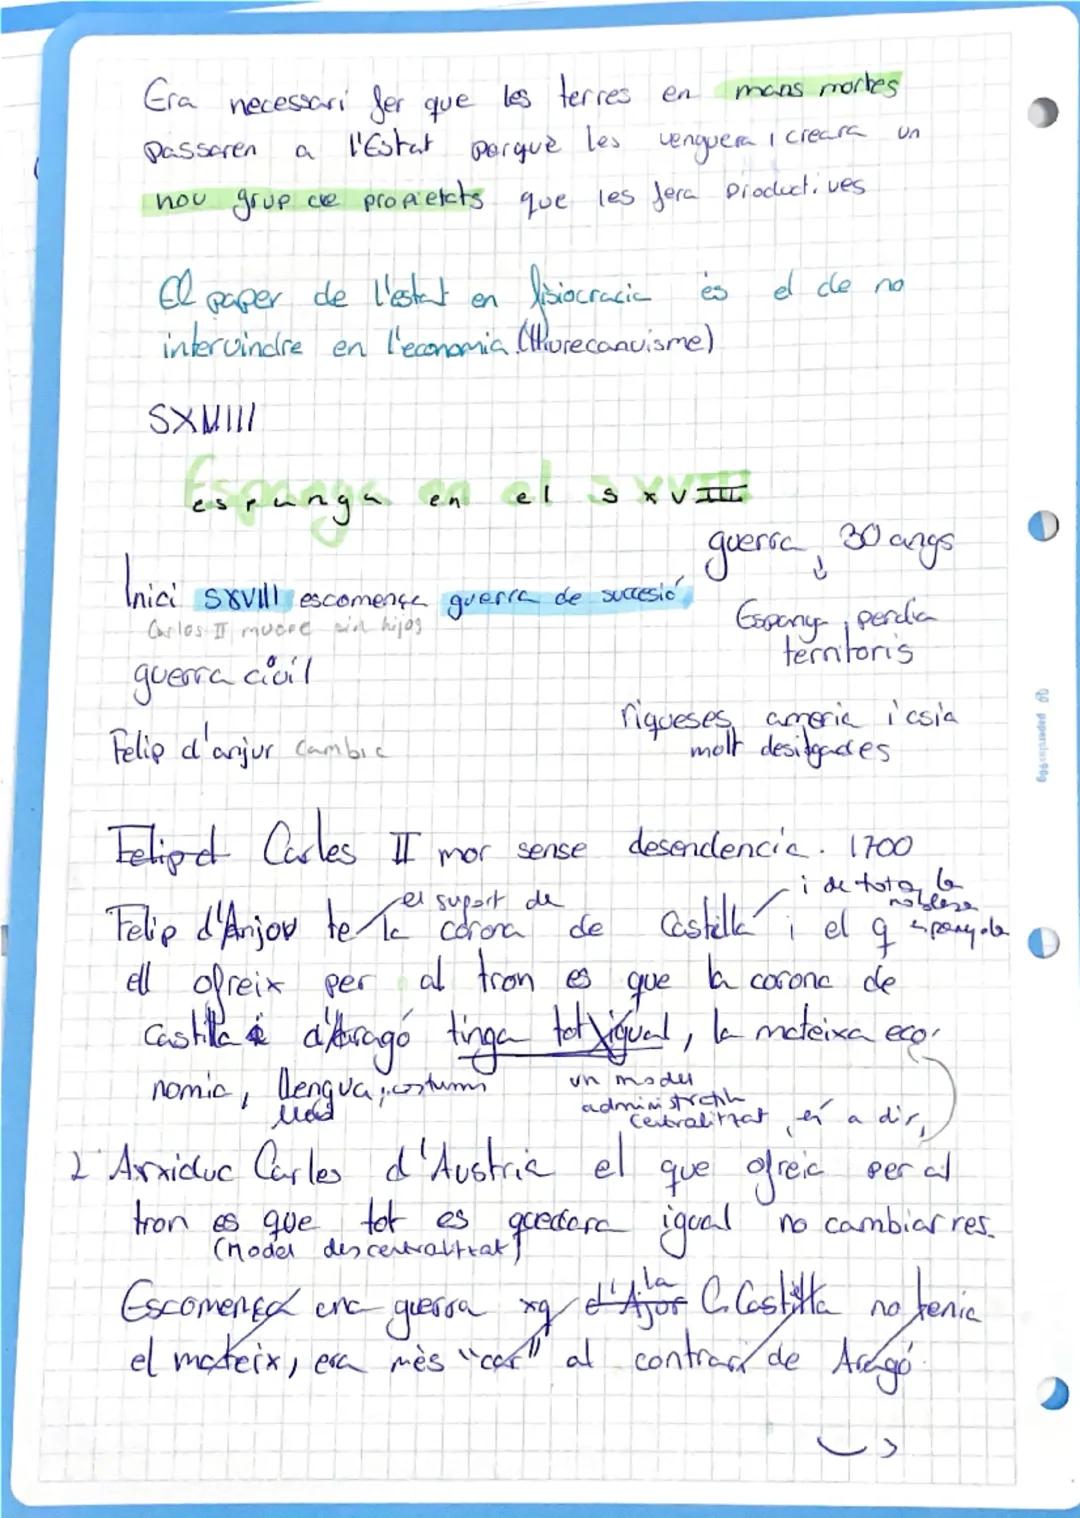 Era necessari fer que les terres en mans mortes
passaren a l'Estat perquè les venguera i creara un
nou grup de propietats que les fera productives
El paper de l'estat en fisiocracia és el de no
intervindre en l'economia (lliurecanvisme)
SXVIII
Espanya en el SXVIII
espanya en el s XVIII
guerra 30 anys
Inici SXVIII escomença guerra de succesió
Carlos II muere sin hijos
Espany perdia
territoris
guerra civil
riqueses ameria i asia
molt desitgades
Felip d'anjur Cambia
Felip d Carles II mor sense desendencia. 1700
el suport de
i de tota la
noblesa
espanyola
Felip d'Anjou te la corona de Castella i el q
ell ofreix per al tron es que la corona de
Castilla i d'Aragó tinga tot igual, la mateixa eco-
nomia, llengua, costums
un model
administratiu
centralitzat, és a dir,
2 Arxiduc Carles d'Austria el que ofreic per al
tron es que tot es quedara igual no cambiar res.
(Model descentralitzat)
Escomença una guerra xq d'Ajor la C. Castilla no tenia
el mateix, era mès "car" al contrari de Aragó.